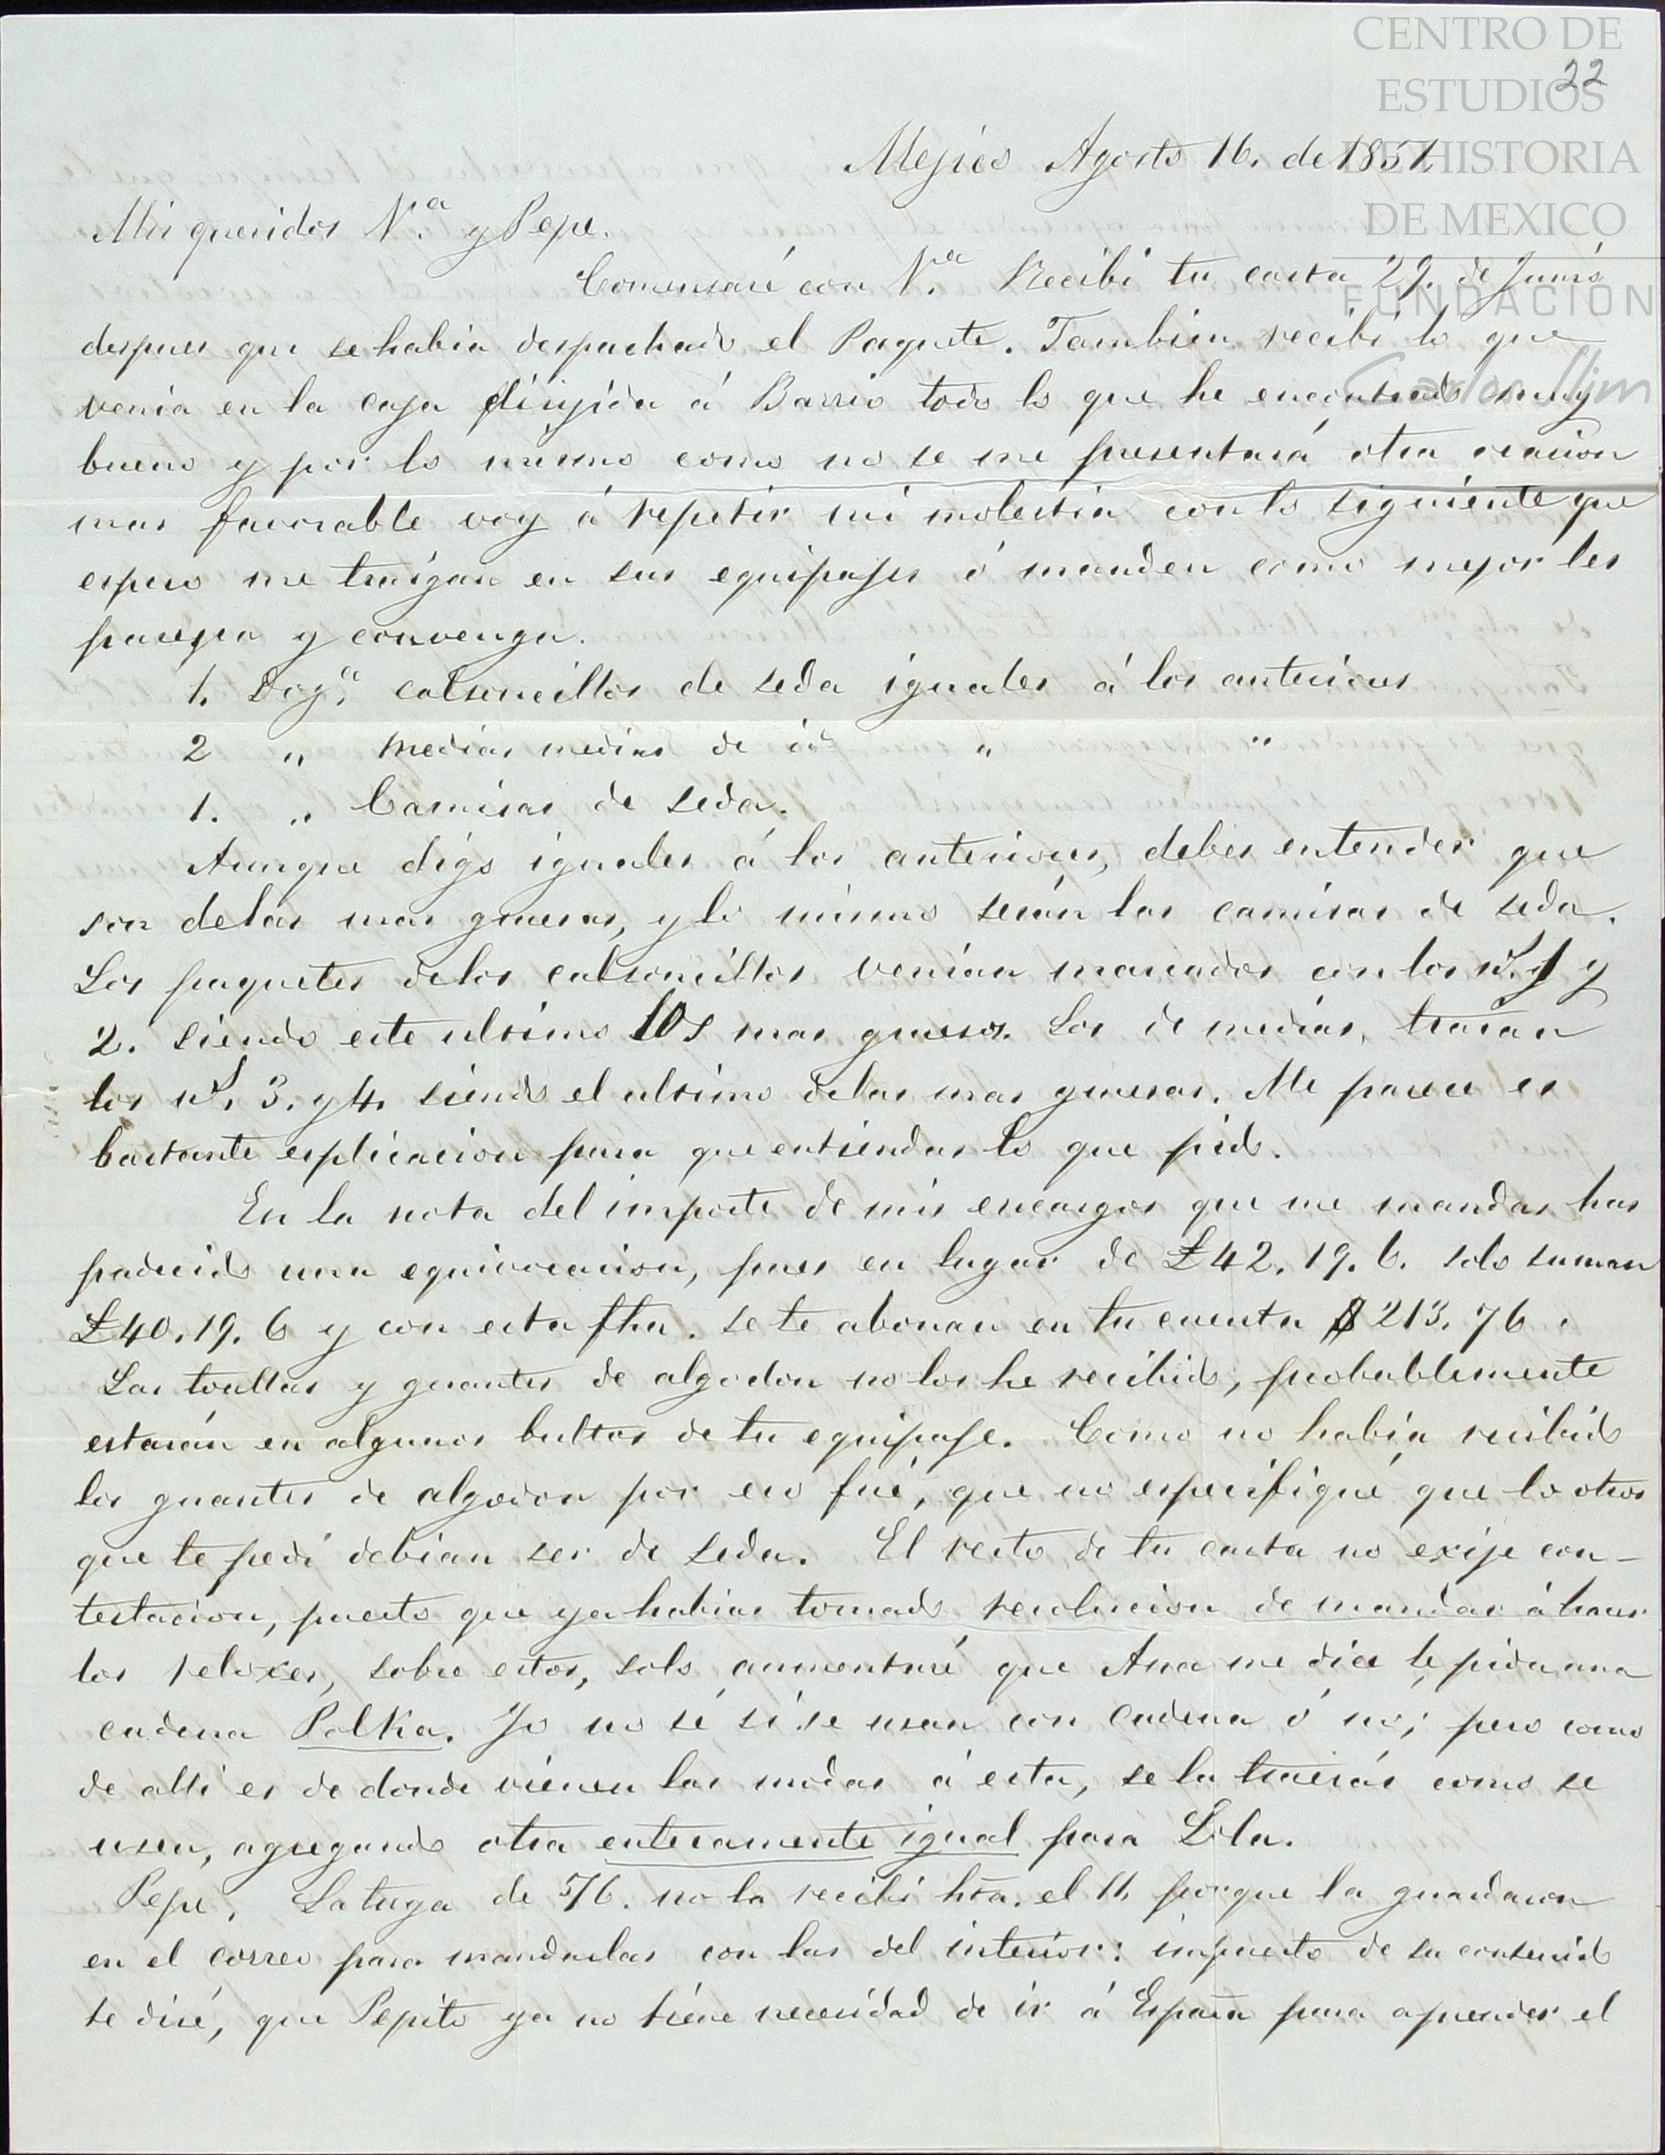 CENTRO DE
22
ESTUDIOS
DE HISTORIA
DE MEXICO
FUNDACION
Carlos Slim
Mejico Agosto 16. de 1851.
Mis queridos N.ª y Pepe.
Comensaré con N.ª Recibi tu carta 29. de Junio
despues que se habia despachado el Paquete. Tambien recibi lo que
venia en la caja dirijida á Barrio todo lo que he encontrado muy
bueno y por lo mismo como no se me presentará otra ocasion
mas favorable voy á repetir mi molestia con lo siguiente que
espero me traigan en sus equipajes ó manden como mejor les
paresca y convenga.
1. Dozª calsoncillos de seda iguales á los anteriores
2 " medias medias de id " "
1. " Camisas de seda.
Aunque digo iguales á los anteriores, debes entender que
son de las mas gruesas, y lo mismo serán las camisas de seda.
Los paquetes de los calsoncillos venian marcados con los nº. 1 y
2. siendo este ultimo los mas gruesos. Los de medias, traian
los nº. 3. y 4. siendo el ultimo de las mas gruesas. Me parece es
bastante esplicacion para que entiendas lo que pido.
En la nota del importe de mis encargos que me mandas has
padecido una equivocacion, pues en lugar de £42. 19. 6. solo suman
£40. 19. 6 y con esta fha. se te abonan en tu cuenta $213. 76.
Las toallas y guantes de algodon no los he recibido, probablemente
estarán en algunos bultos de tu equipaje. Como no habia recibido
los guantes de algodon por eso fué, que no especifiqué que lo otros
que te pedi debian ser de seda. El resto de tu carta no exije con-
testacion, puesto que ya habias tomado resolucion de mandar á hacer
los reloxes, sobre estos, solo aumentaré que Ana me dice te pida una
cadena Polka. Yo no sé si se usan con cadena ó no; pero como
de alli es de donde vienen las modas á esta, se la traerás como se
usen, agregando otra enteramente igual para Lola.
Pepe, La tuya de 5/6. no la recibi hta. el 11. porque la guardaron
en el correo para mandarlas con las del interior: impuesto de su contenido
te diré, que Pepito ya no tiene necesidad de ir á España para aprender el